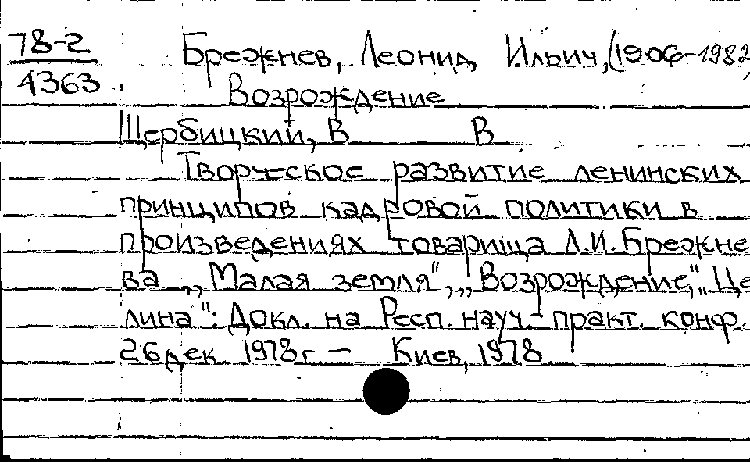 78-2
4363
Брежнев, Леонид Ильич, (1906-1982
Возрождение
Щербицкий, В В
Творческое развитие ленинских
принципов кадровой политики в
произведениях товарища Л.И. Брежне
ва „Малая земля", „Возрождение", „Це
лина": Докл. на Респ. науч.-практ. конф.
26 дек 1978 г. – Киев, 1978